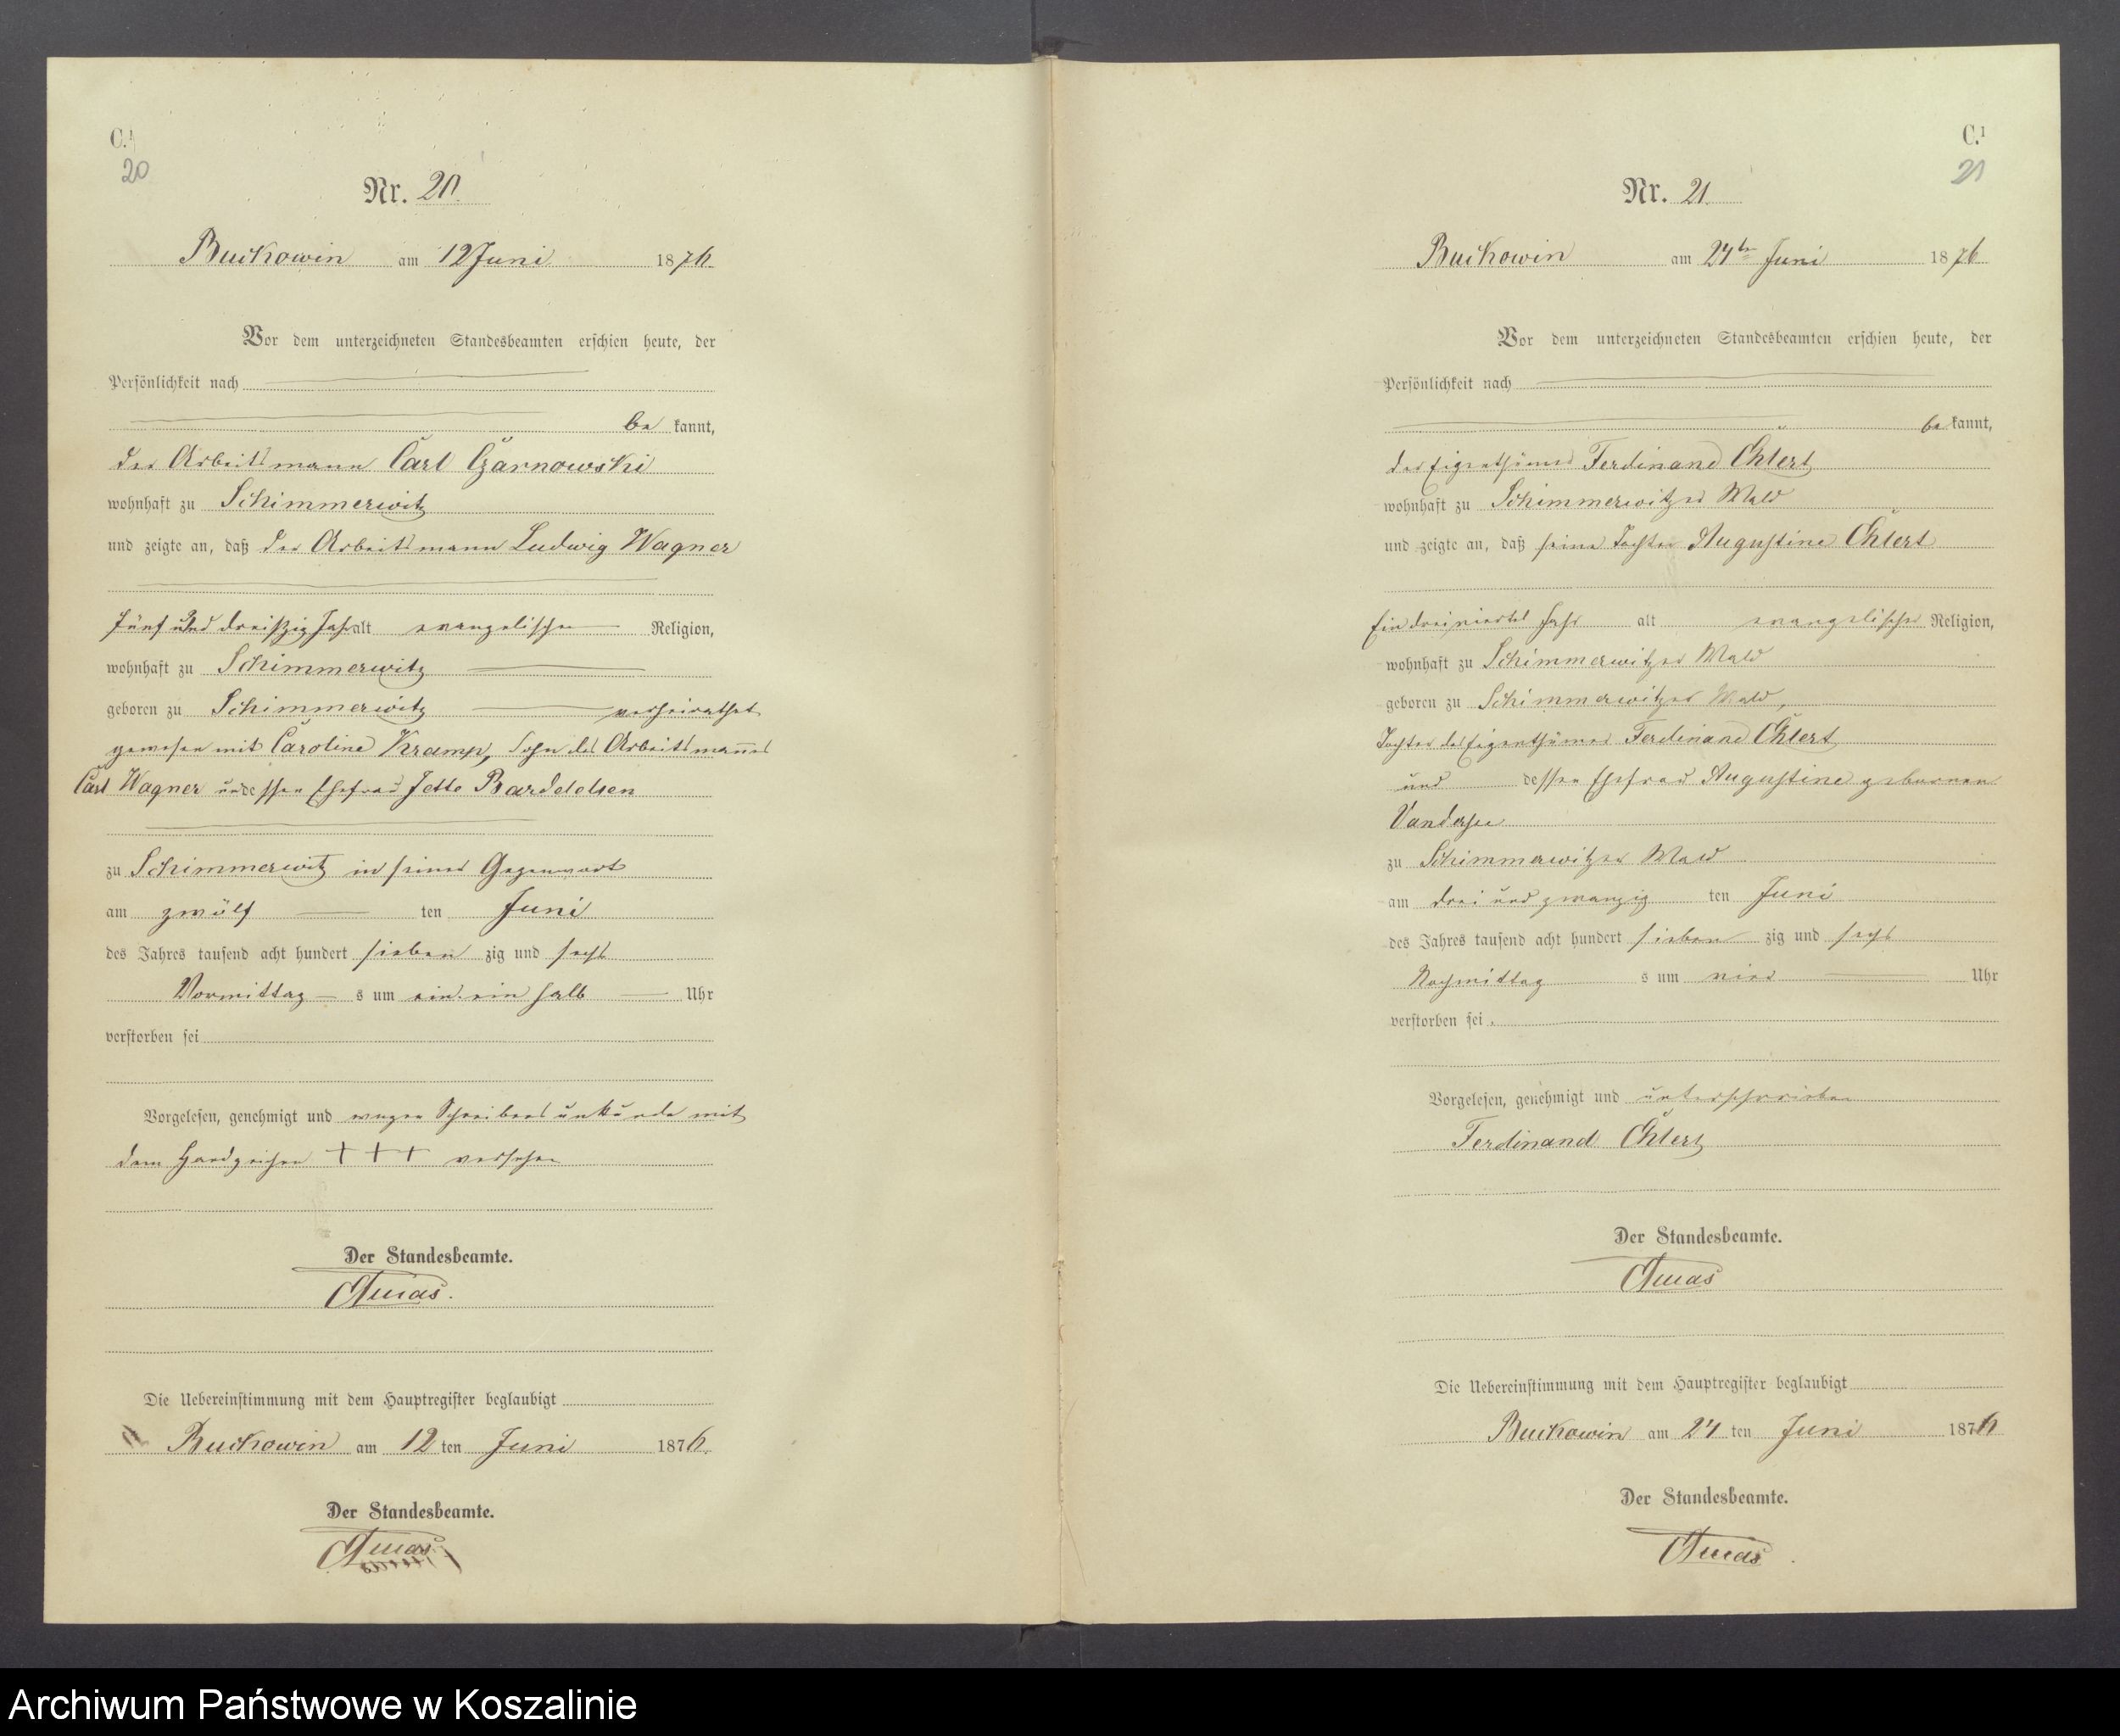 C.1
20
Nr. 20.
Buckowin am 12 Juni 1876.
Vor dem unterzeichneten Standesbeamten erschien heute, der
Persönlichkeit nach
be kannt,
der Arbeitsmann Carl Czarnowski
wohnhaft zu Schimmerwitz
und zeigte an, daß der Arbeitsmann Ludwig Wagner
fünf und dreißzig Jahr alt evangelischer Religion,
wohnhaft zu Schimmerwitz
geboren zu Schimmerwitz verheirathet
gewesen mit Caroline Kramp, Sohn des Arbeitsmannes
Carl Wagner und dessen Ehefrau Jette
zu Schimmerwitz in seiner Gegenwart
am zwölf ten Juni
des Jahres tausend acht hundert sieben zig und sechs
Vormittag s um ein ein halb Uhr
verstorben sei
Vorgelesen, genehmigt und wegen Schreibensunkunde mit
dem Handzeichen +++ versehen
Der Standesbeamte.
Die Uebereinstimmung mit dem Hauptregister beglaubigt
Buckowin am 12 ten Juni 1876.
Der Standesbeamte.
C.1
21
Nr. 21.
Buckowin am 24ten Juni 1876
Vor dem unterzeichneten Standesbeamten erschien heute, der
Persönlichkeit nach
be kannt,
der Eigenthümer Ferdinand Ehlert
wohnhaft zu Schimmerwitzer Wald
und zeigte an, daß seine Tochter Augustine Ehlert
Ein dreiviertel Jahr alt evangelischer Religion,
wohnhaft zu Schimmerwitzer Wald
geboren zu Schimmerwitzer Wald,
Tochter des Eigenthümer Ferdinand Ehlert
und dessen Ehefrau Augustine geborenen
Vandersee
zu Schimmerwitzer Wald
am drei und zwanzig ten Juni
des Jahres tausend acht hundert sieben zig und sechs
Nachmittag s um vier Uhr
verstorben sei.
Vorgelesen, genehmigt und unterschrieben
Ferdinand Ehlert
Der Standesbeamte.
Die Uebereinstimmung mit dem Hauptregister beglaubigt
Buckowin am 24 ten Juni 1876
Der Standesbeamte.
Archiwum Państwowe w Koszalinie